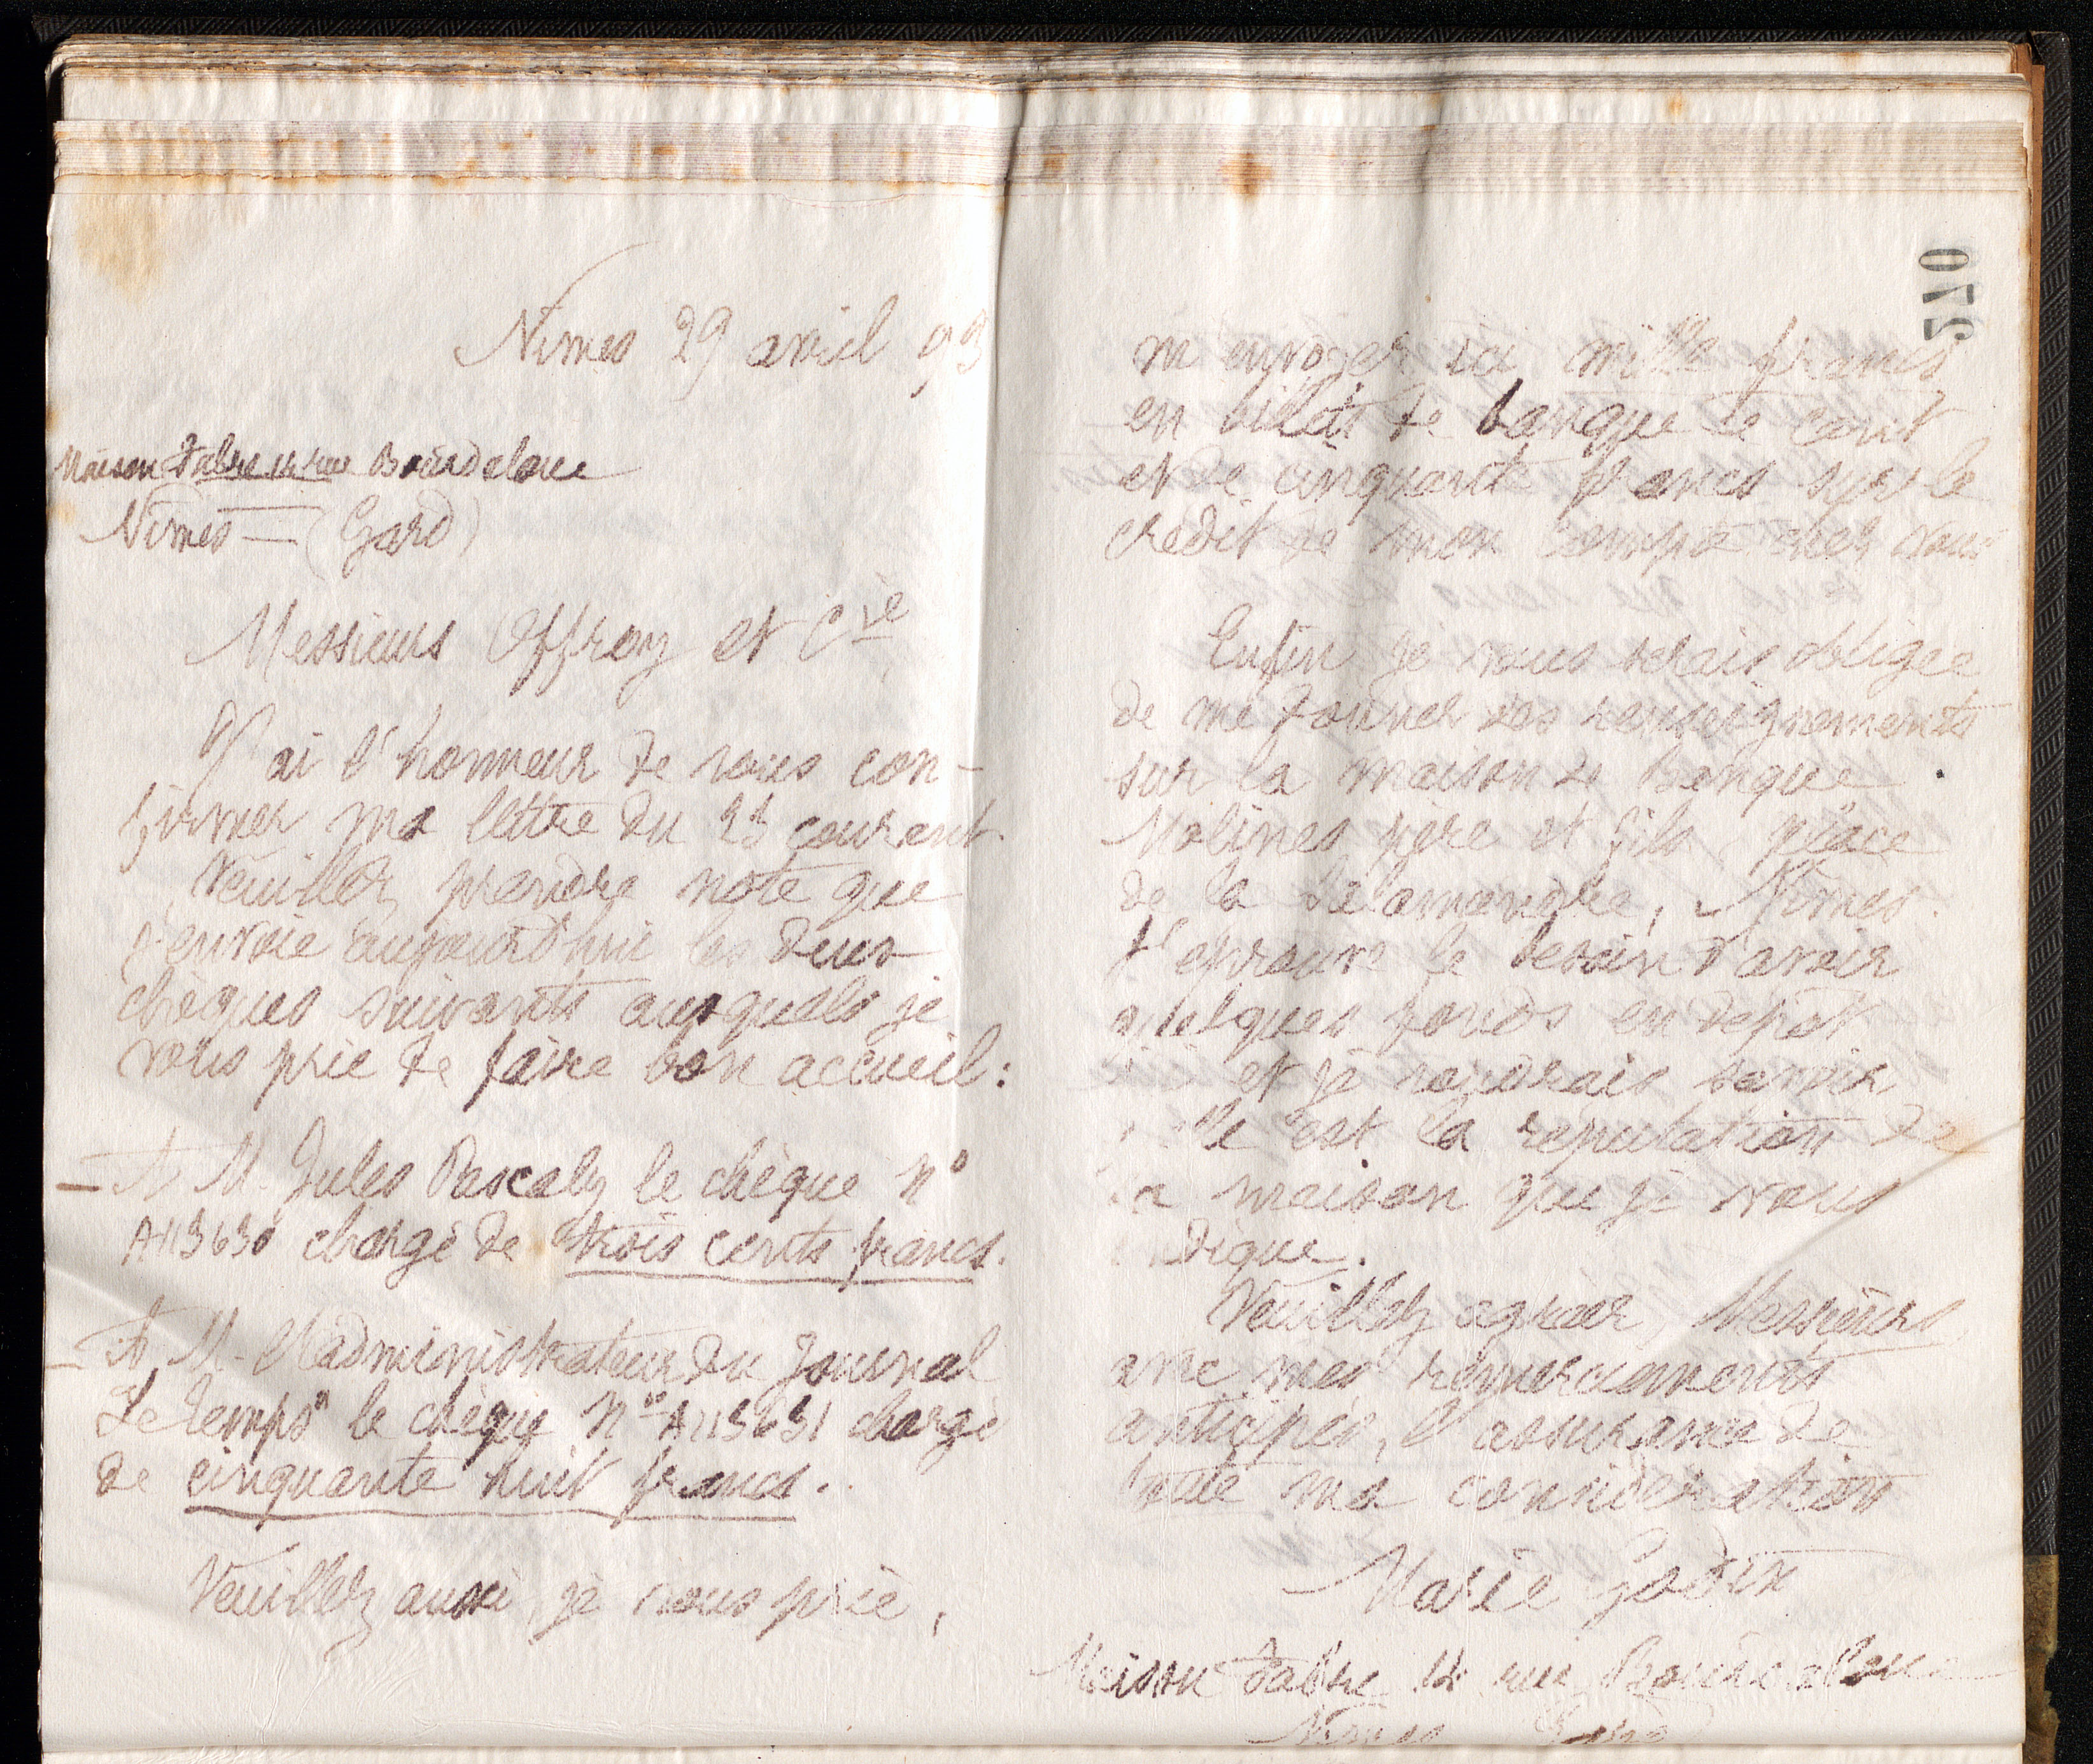 Nîmes 29 avril 93
Maison Fabre 14 rue Bourdaloue
Nîmes — (Gard)
Messieurs Offroy et Cie
J'ai l'honneur de vous con-
firmer ma lettre du courant.
Veuillez prendre note que
j'envoie aujourd'hui les deux
chèques suivants auxquels je
vous prie de faire bon accueil :
— A M. Jules Pascaly le chèque No
A113630 chargé de trois cents francs.
— A M. l'administrateur du journal
Le temps" le chèque No A113631 chargé
de cinquante huit francs.
Veuillez aussi, je vous prie,
270
m'envoyer ici mille francs
en billets de banque de cent
et de cinquante francs sur le
crédit de mon compte chez vous
Enfin je vous serais obligée
de me donner des renseignements
sur la maison de Banque
Molines père et fils, place
de la Salamandre, Nîmes.
J'éprouve le besoin d'avoir
quelques fonds en dépôt
et je voudrais savoir
est la réputation de
la maison que je vous
indique.
Veuillez agréer, Messieurs,
avec mes remerciements
anticipés, l'assurance de
toute ma considération
Marie Godin
Maison Fabre 14 rue Bourdaloue
Nîmes (Gard)